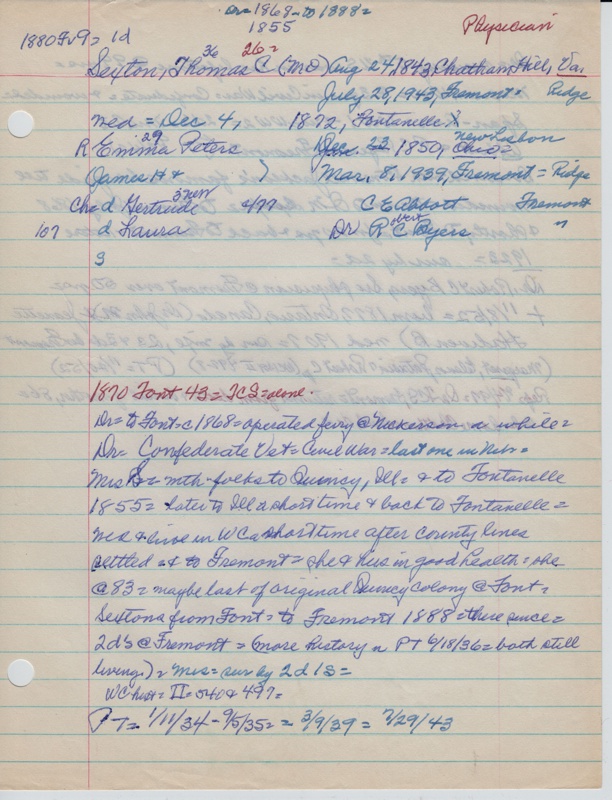 Dr = 1868 = to 1888 =
1855
Physician
1880 Fv9 = 1d
36 26 =
Sexton, Thomas C (MD) Aug 24, 1843, Chatham Hill, Va.
July 28, 1943, Fremont = Ridge
med = Dec 4, 1872, Fontanelle X
R Emma Peters 29 Dec. 22 1850, New Lisbon Ohio =
James H + } Mar. 8, 1939, Fremont = Ridge
Ch = d Gertrude 3 4/77 C E Abbott Fremont
107 d Laura Dr Robert C Byers "
S
1870 Font 43 = TCS = alone.
Dr = to Font = c 1868 = operated ferry @ Nickerson a while =
Dr = Confederate Vet = Civil War = last one in Neb =
Mrs S = with folks to Quincy, Ill = & to Fontanelle
1855 = later to Ill a short time & back to Fontanelle =
med & live in WC a short time after county lines
settled = & to Fremont = she & hus in good health = she
@ 83 = maybe last of original Quincy Colony @ Font =
Sextons from Font = to Fremont 1888 = there since =
2d's @ Fremont = (more history in PT 6/18/36 = both still
living.) = Mrs = sur by 2d 1S =
WC hist = II = 540 & 497 =
PT = 1/11/34 - 9/5/35 = = 3/9/39 = 7/29/43